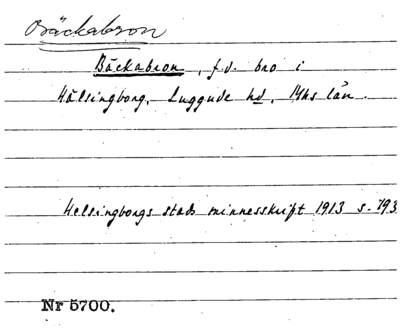 Bäckabron
Bäckabron, f.d. bro i
Hälsingborg, Luggude hd, Mhs län.
Helsingborgs stads minnesskrift 1913 s. 793
Nr 5700.